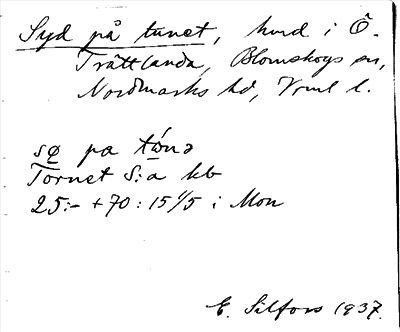 Syd på tunet, hmd i Ö.
Trättlanda, Blomskogs sn,
Nordmarks hd, Vrml l.
sø pa tɷ́nə
Tornet S:a kb
25:- +70:15 1/5 i Mon
E. Silfors 1937.